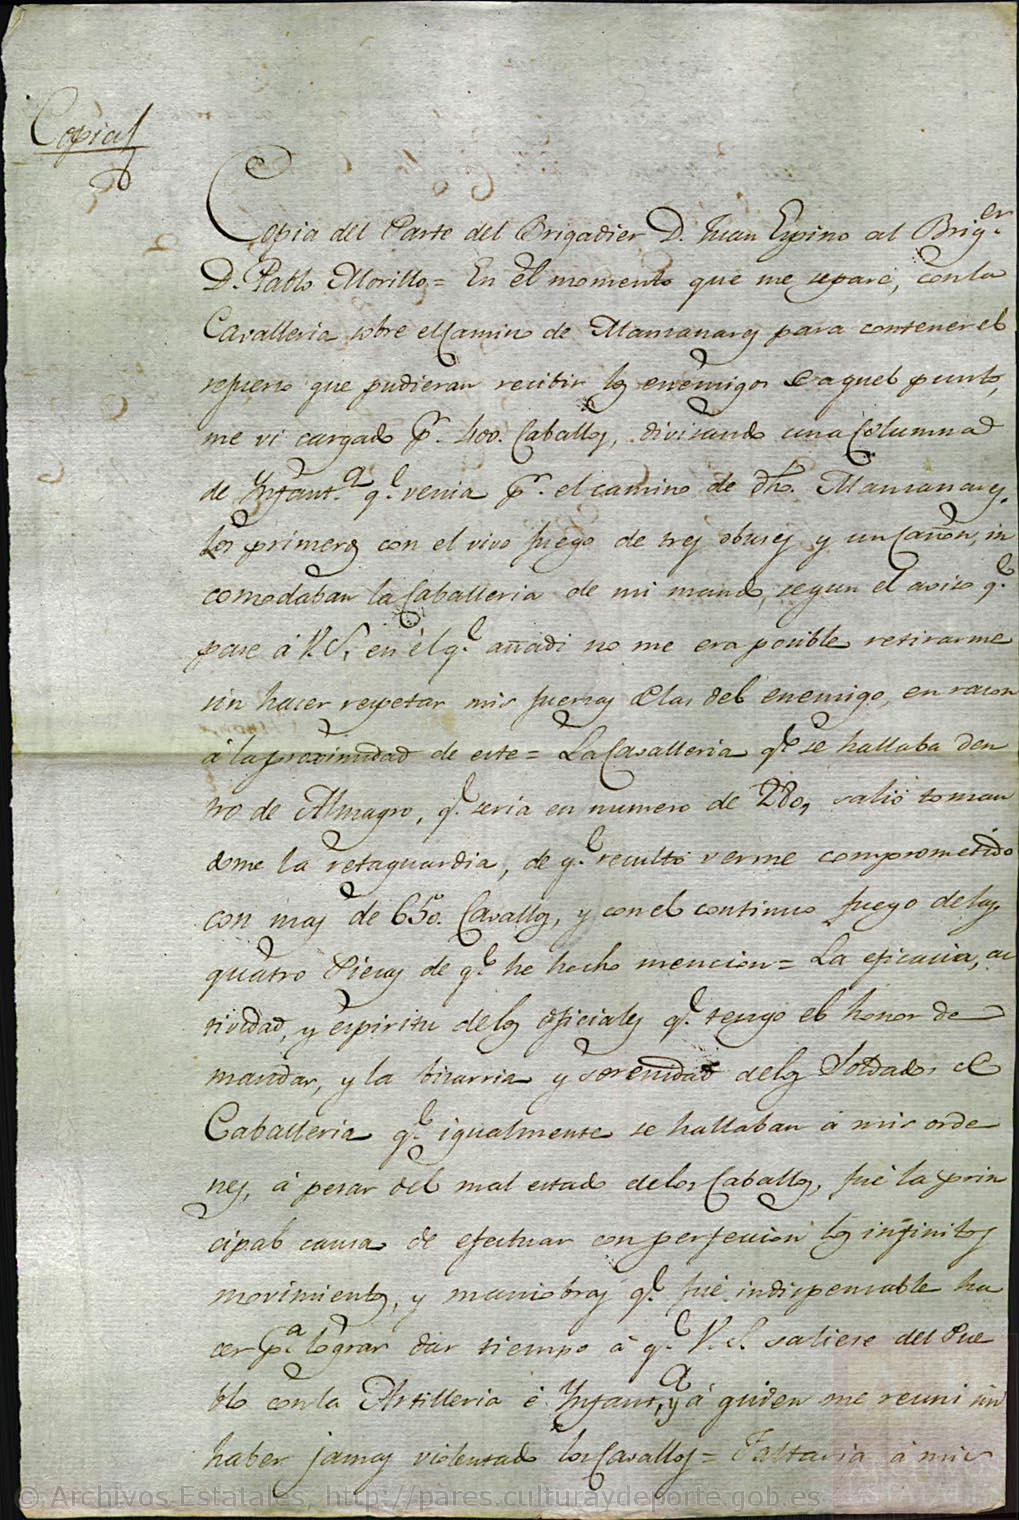 Copia
Copia del Parte del Brigadier D. Juan Espino al Brig.er
D. Pablo Morillo = En el momento que me separé, con la
Cavalleria sobre el Camino de Mansanares para contener el
refuerso que pudieran recibir los enemigos de aquel punto,
me vi cargado pr. 400. Caballos, divisando una Columna
de Ynfant.a q.e venia pr. el camino de dho. Mansanares.
Los primeros con el vivo fuego de tres obuses y un Cañon, in
comodaban la Caballeria de mi mando, segun el aviso q.e
pase á V.S. en él q.e añadi no me era posible retirarme
sin hacer respetar mis fuersas de las del enemigo, en rason
á la proximidad de este = La Cavalleria q.e se hallaba den
tro de Almagro, q.e seria en numero de 280, salió toman
dome la retaguardia, de q.e resultó verme comprometido
con mas de 650. Cavallos, y con el continuo fuego de las
quatro Piesas de q.e he hecho mencion = La eficacia, ac
tividad, y espiritu de los oficiales q.e tengo el honor de
mandar, y la bisarria y serenidad de los Soldados de
Caballeria q.e igualmente se hallaban á mis orde
nes, á pesar del mal estado de los Caballos, fué la prin
cipal causa de efectuar con perfeccion los infinitos
movimientos, y maniobras q.e fué indispensable ha
cer p.a lograr dar tiempo á q.e V.S. saliese del Pue
blo con la Artilleria é Ynfant.a, y á quien me reuni sin
haber jamas violentado los Cavallos = Faltaria á mis
© Archivos Estatales, http://pares.culturaydeporte.gob.es